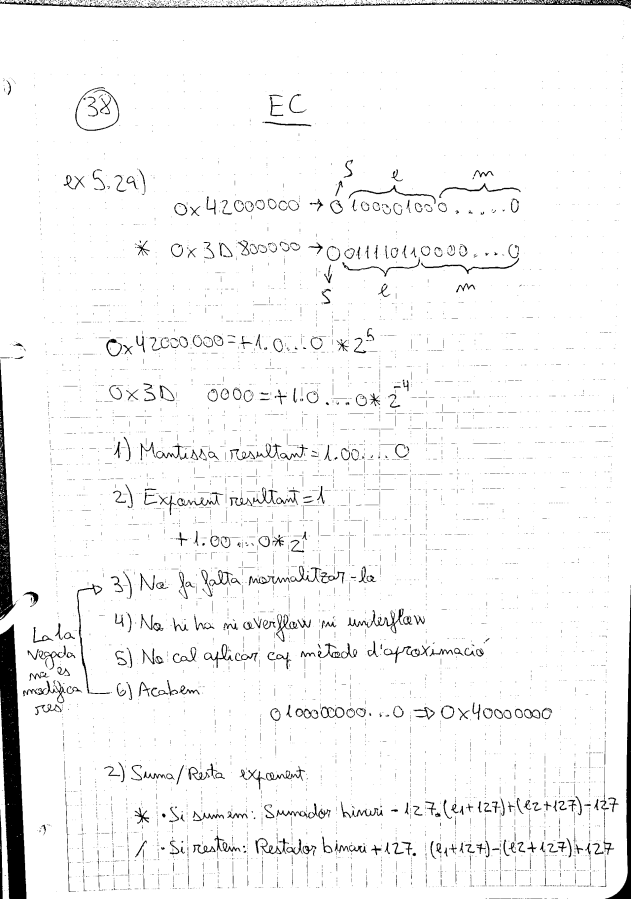 38
EC
ex 5.2a)
S e m
0x42000000 → 0 100001000......0
* 0x3D800000 → 0 011110110000....0
S e m
0x42000000 = +1.0...0 * 2^5
0x3D 0000 = +1.0...0 * 2^-4
1) Mantissa resultant = 1.00....0
2) Exponent resultant = 1
+1.00...0 * 2^1
3) No fa falta normalitzar-la
4) No hi ha ni overflow ni underflow
5) No cal aplicar cap mètode d'aproximació
6) Acabem
La 1a
vegada
no es
modifica
res.
010000000...0 => 0x40000000
2) Suma/Resta exponent.
* · Si sumem: Sumador binari - 127. (e1+127)+(e2+127)-127
/ · Si restem: Restador binari + 127. (e1+127)-(e2+127)+127